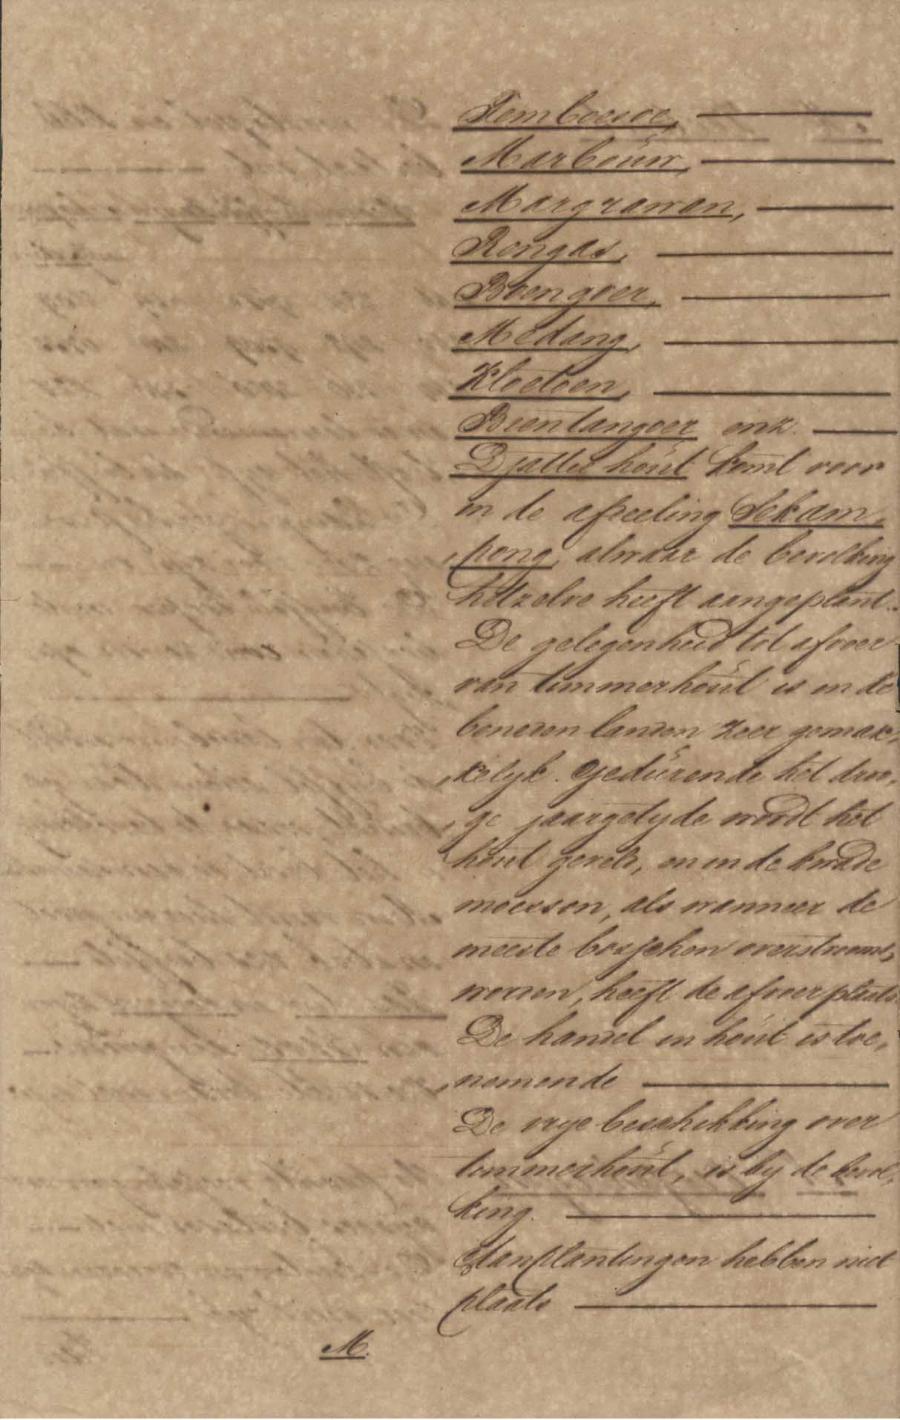 Temboesoe,
Marbouw,
Margrawan,
Rengas,
Boengoer,
Medang,
Kloetoen,
Bientangoer enz.
Djattie hout komt voor
in de afdeeling Sekam,
pong, alwaar de bevolking
hetzelve heeft aangeplant.
De gelegenheid tot afvoer
van timmerhout is in de
beneden landen zeer gemak,
kelijk. Gedurende het droo,
ge jaargetijde wordt het
hout geveld, en in de kwade
moesson, als wanneer de
meeste bosschen overstroomd,
worden, heeft de afvoer plaats
De handel in hout is toe,
nemende
De vrije beschikking over
timmerhout, is by de bevol,
king.
Aanplantingen hebben niet
plaats
M.